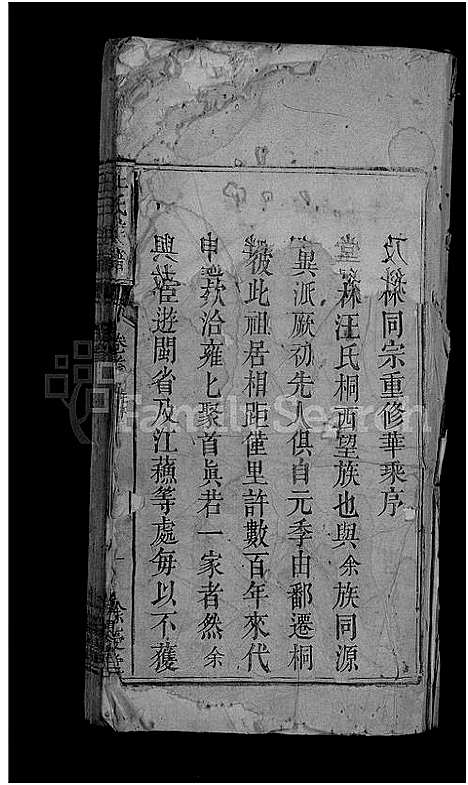 及𣗋同宗重修華乘序
𣗋汪氏桐西望族也與余族同源
異派厥初先人俱自元季由鄱遷桐
彼此祖居相距僅里許數百年來代
申歡洽雍匕聚首眞若一家者然余
與宦遊閩省及江蘓等處每以不獲
汪氏宗譜
卷
餘慶堂
FamilySearch